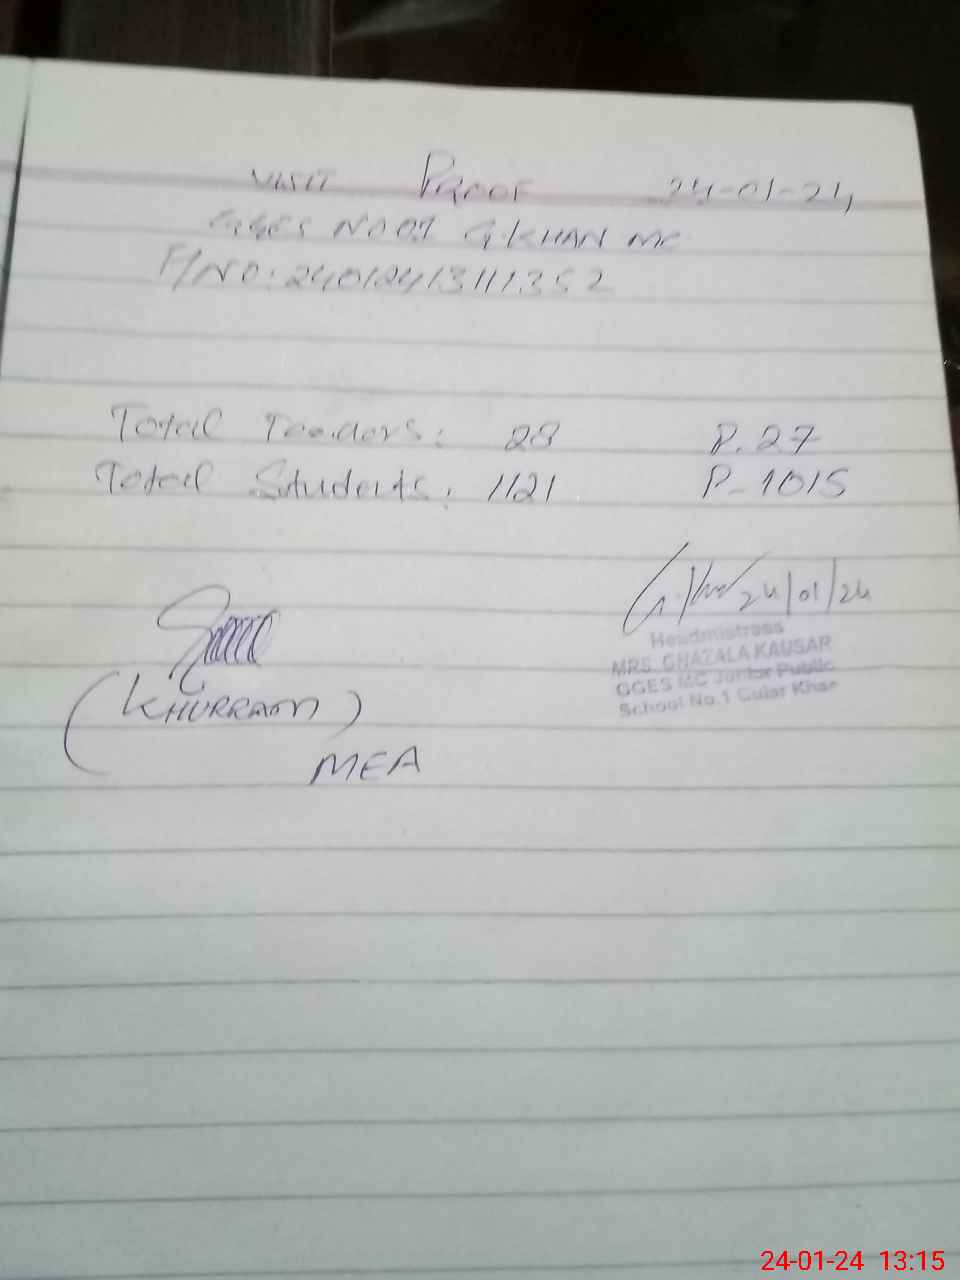 VISIT PROOF 24-01-24
GGES NO 01 G.KHAN MC
F/NO: 24012413111352
Total Teachers: 28 P. 27
Total Students: 1121 P-1015
24/01/24
Headmistress
MRS. GHAZALA KAUSAR
GGES MC Junior Public
School No.1 Gujar Khan
(KHURRAM)
MEA
24-01-24 13:15